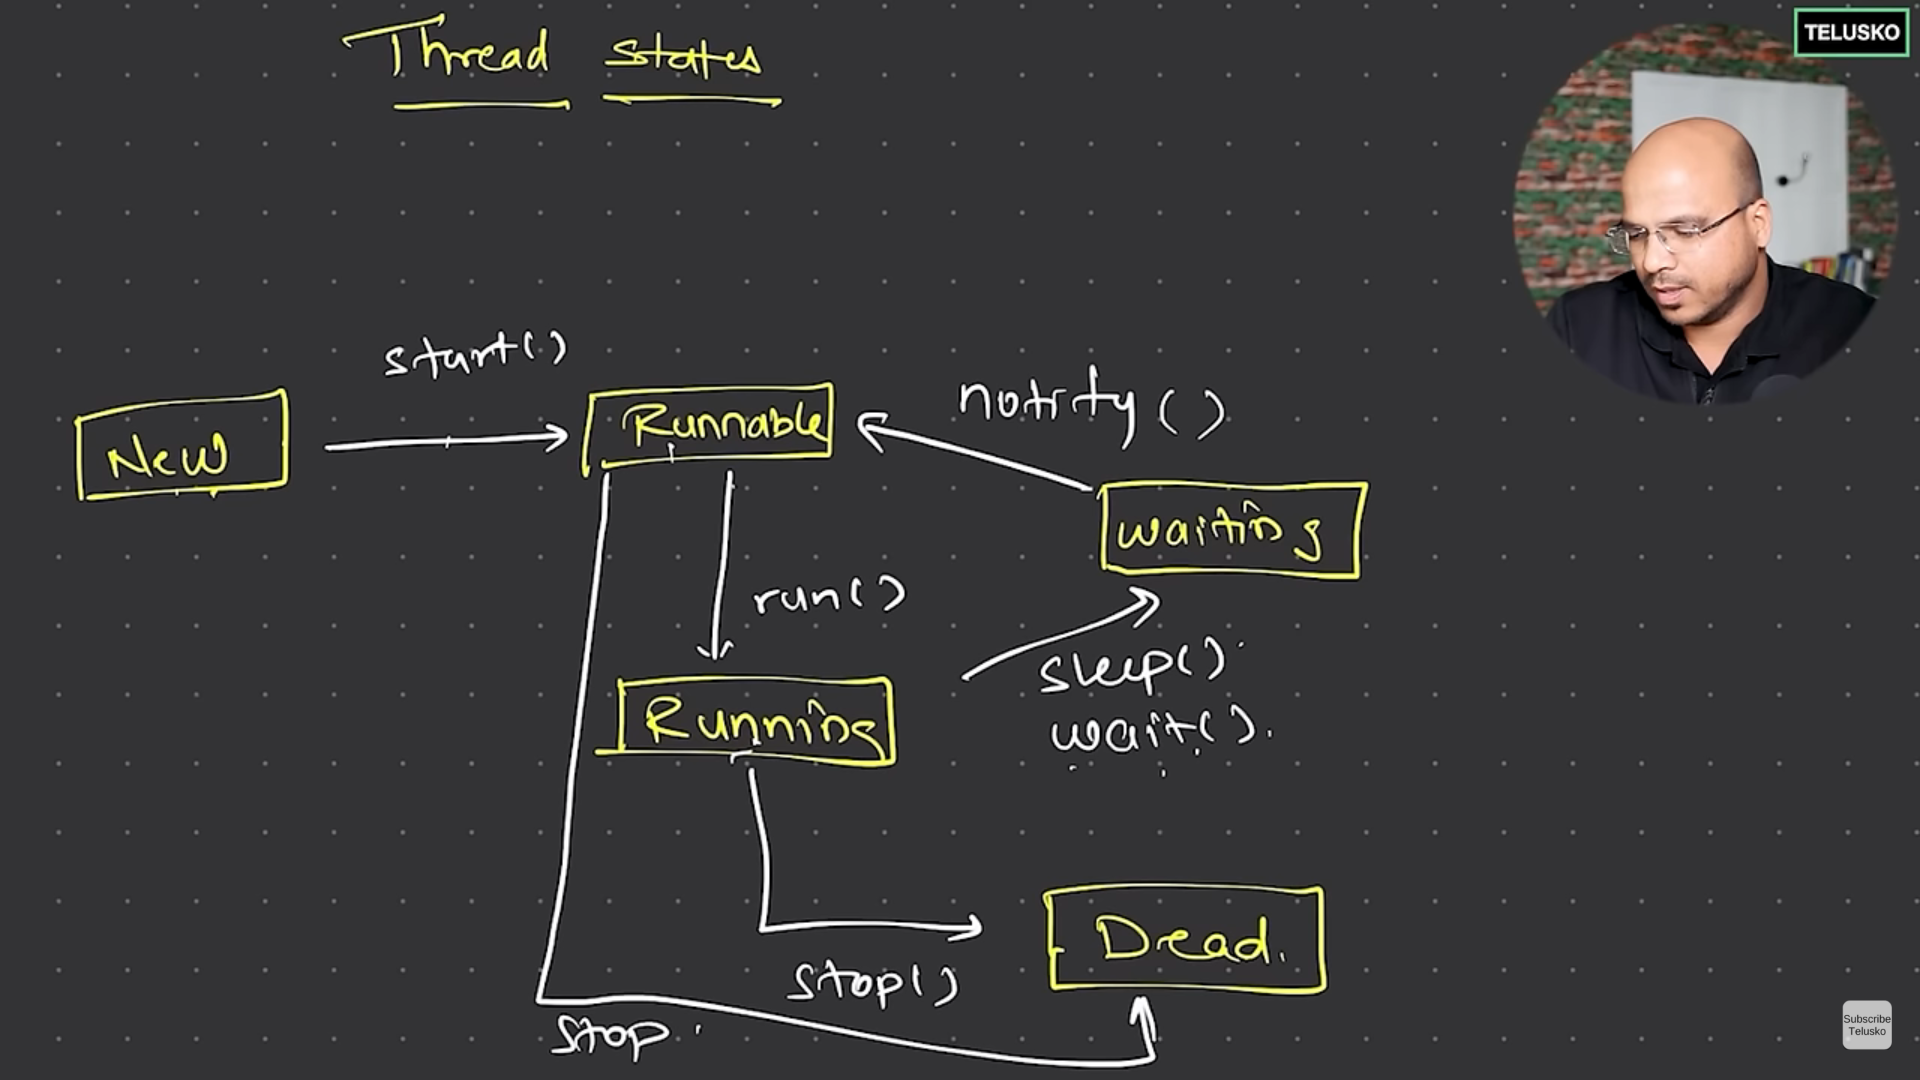 Thread states
TELUSKO
start()
New
Runnable
notify()
waiting
run()
sleep().
wait().
Running
Dead.
stop()
stop.
Subscribe
Telusko